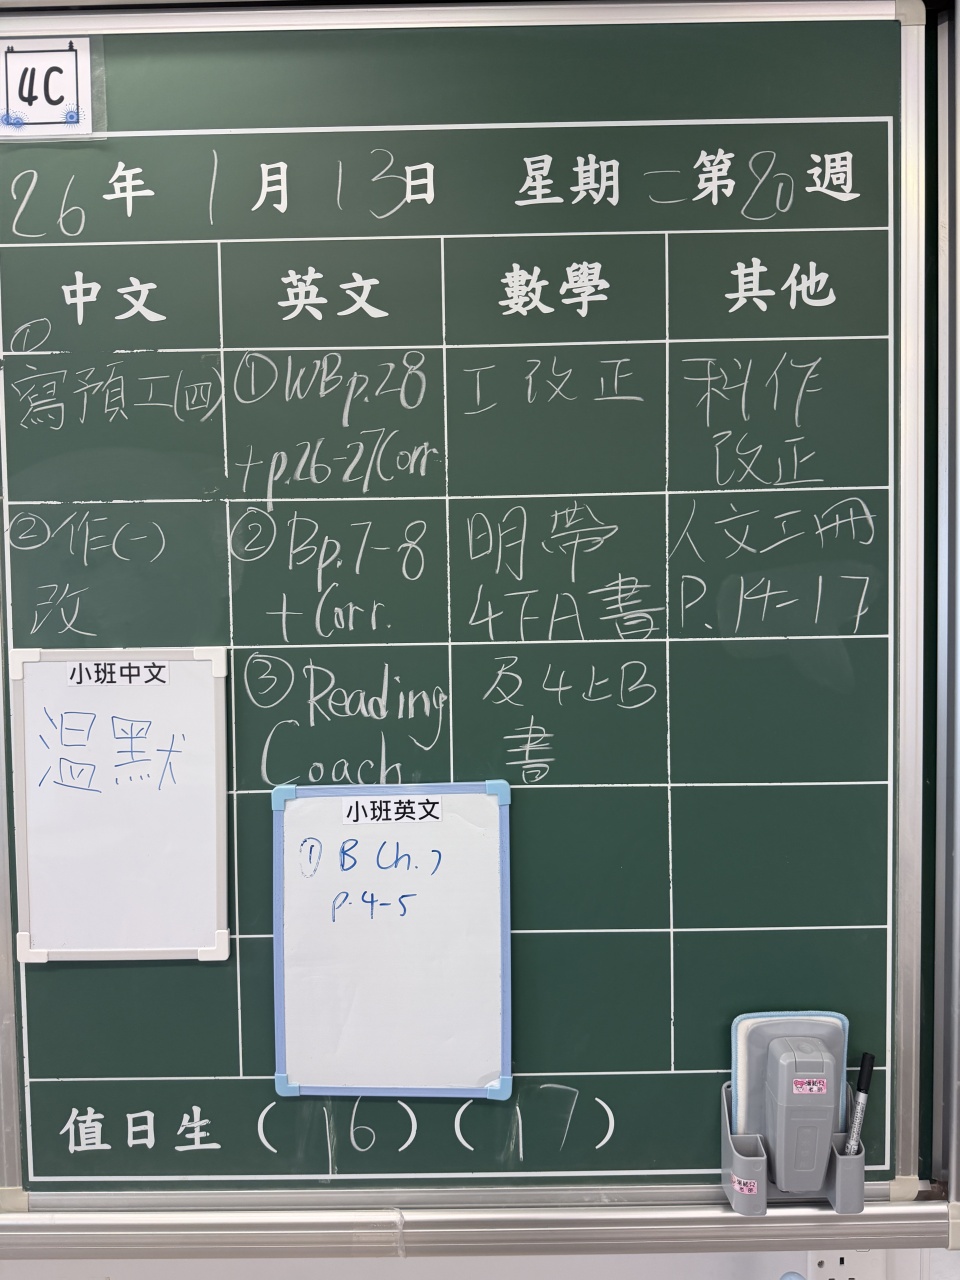 4C
26年1月13日 星期二第20週
中文 英文 數學 其他
①
寫預工(四)
②作(一)
改
小班中文
溫默
①WBp.28
+p.26-27Corr.
②Bp.7-8
+Corr.
③Reading
Coach
小班英文
① B (h.)
p.4-5
工改正
明帶
4下A書
及4上B
書
科作
改正
人文工冊
P.14-17
值日生(16)(17)